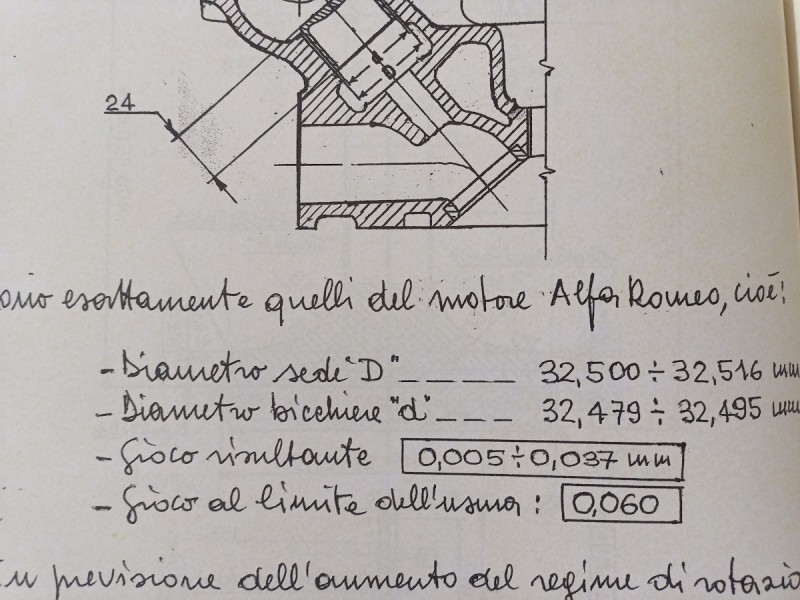 24
ono esattamente quelli del motore Alfa Romeo, cioè:
- Diametro sede "D" _ _ _ _ _ 32,500 ÷ 32,516 mm
- Diametro bicchiere "d" _ _ _ 32,479 ÷ 32,495 mm
- Gioco risultante 0,005 ÷ 0,037 mm
- Gioco al limite dell'usura : 0,060
In previsione dell'aumento del regime di rotazio